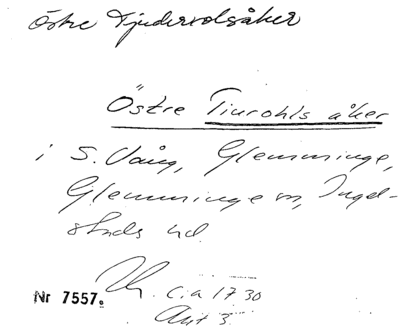 Östre Tjudervolsåker
Östre Tiurohls åker
i S. Vång, Glemminge,
Glemminge sn, Ingel-
stads hd
Nr 7557. c:a 1730
Akt 3.